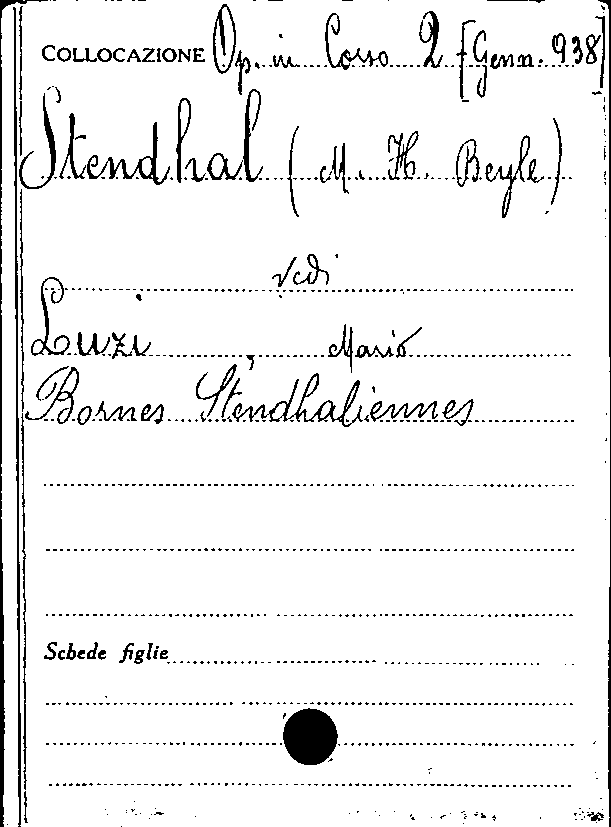 COLLOCAZIONE Op. in Corso 2 [Genn. 938]
Stendhal (M. H. Beyle)
Vedi
Luzi, Mario
Bornes Stendhaliennes
Schede figlie